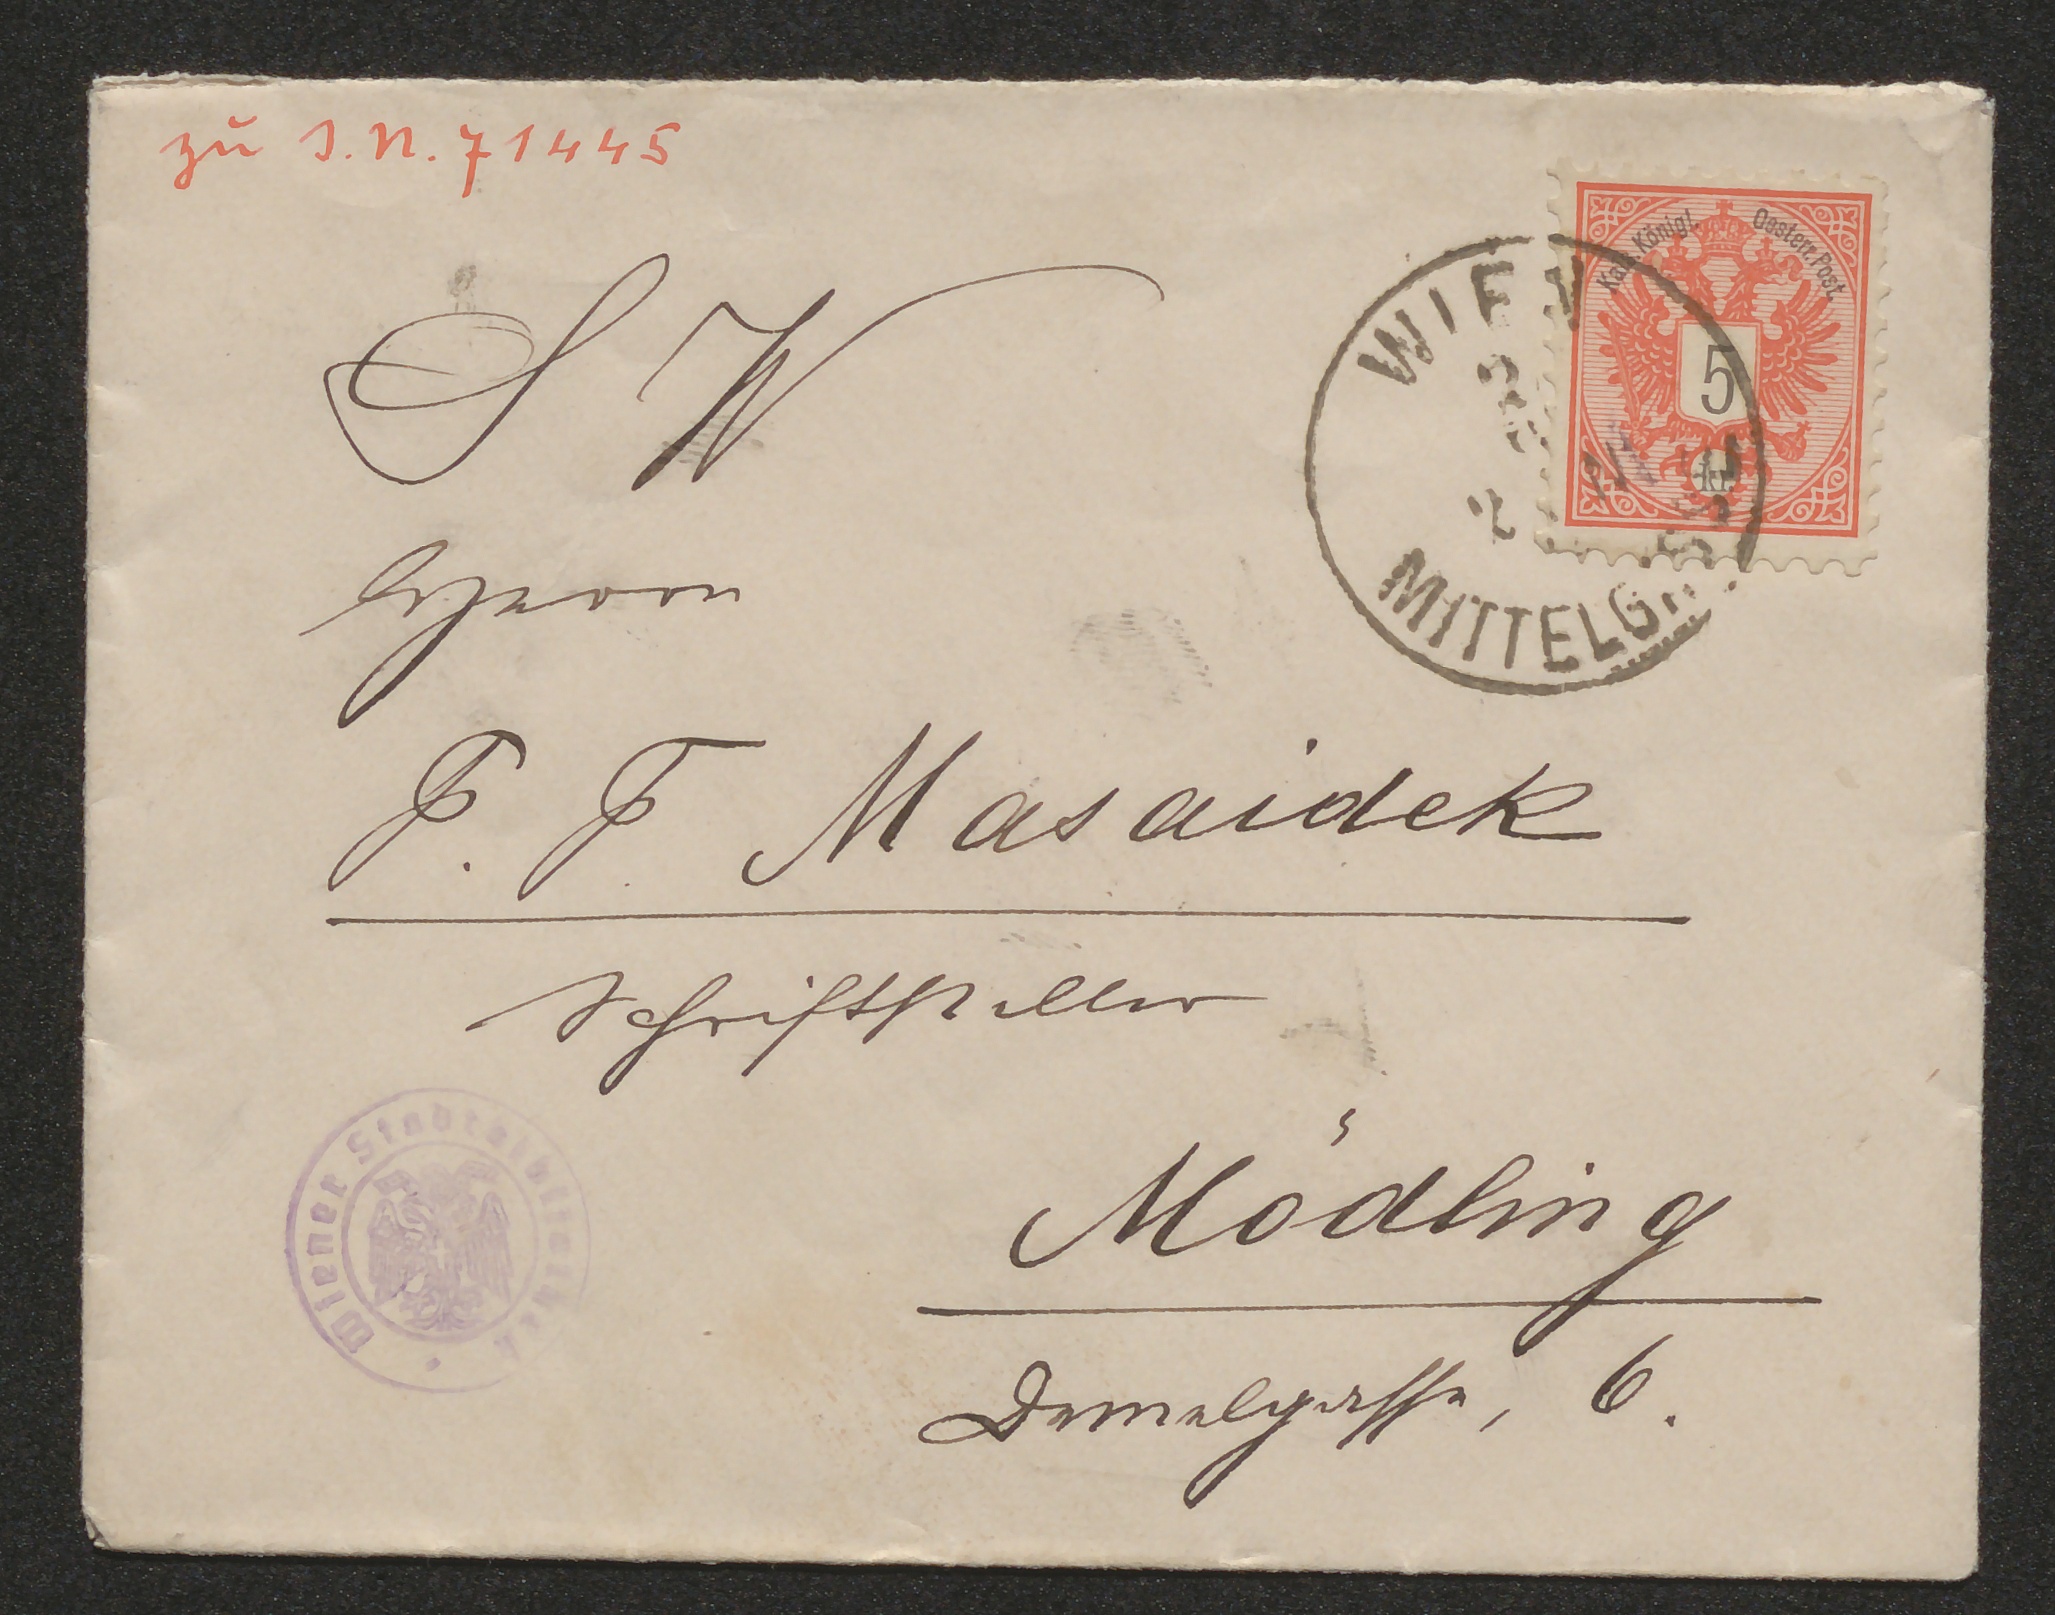 zu I.N. 71445
Kais. Königl. Oesterr. Post.
5
kr.
WIEN
MITTELG
S W
Herrn
F. F. Masaidek
Schriftsteller
Mödling
Demelgasse, 6.
Wiener Stadtbibliothek